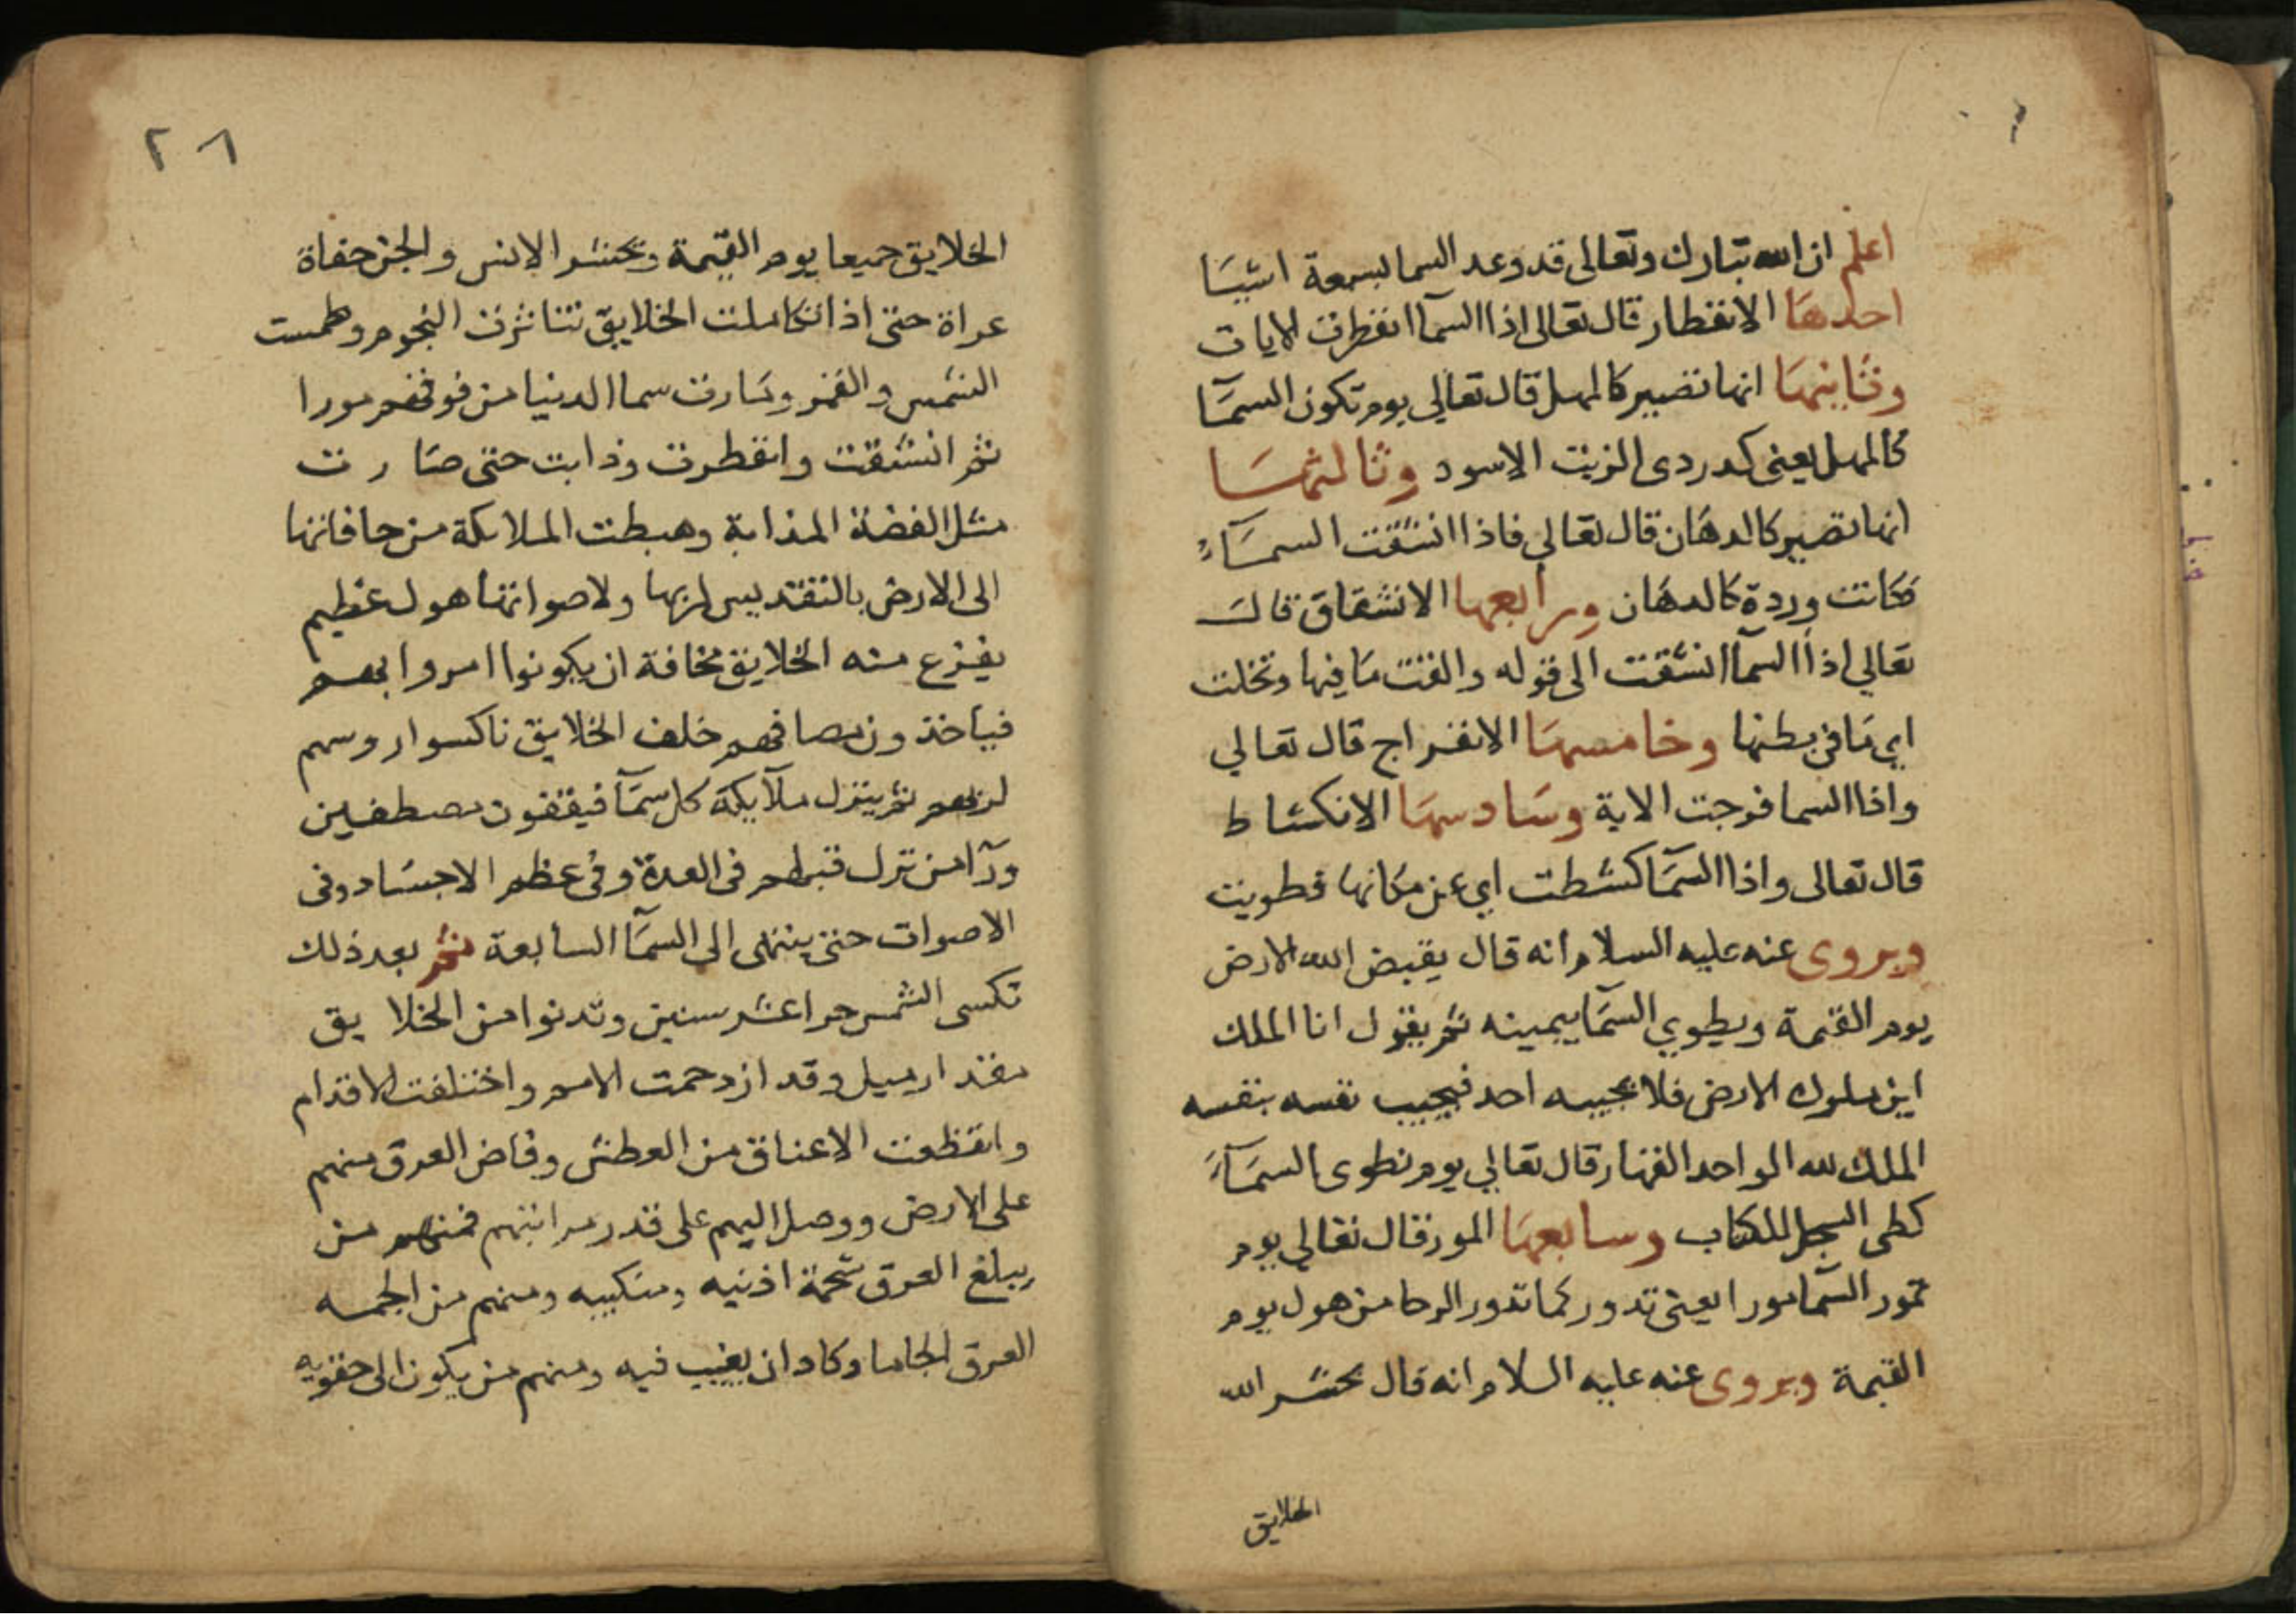 اعلم ان الله تبارك وتعالى قد وعد السما بسبعة اشيَا
احدهَا الانفطار قال تعالى اذا السمآ انفطرت الايات
وثَانيهَا انها تصير كالمهل قال تعالي يوم تكون السمَآ
كالمهل يعنى كدردى الزيت الاسود وثالثهَا
انها تصير كالدهَان قال تعالي فاذا انشقت السمَآء
فكانت وردة كالدهَان ورابعها الانشقاق قال
تعالي اذا السمآ انشقت الى قوله والقت مَا فيها وتخلت
اي مَا فى بطنها وخامسهَا الانفراج قال تعالي
واذا السما فرجت الاية وسَادسهَا الانكشاط
قال تعالى واذا السمَآ كشطت اي عن مكانها فطويت
ويروى عنه عليه السلام انه قال يقبض الله الارض
يوم القيمة ويطوي السمَآ بيمينه ثم يقول انا الملك
اين ملوك الارض فلا يجيبه احد فيجيب نفسه بنفسه
الملك لله الواحد القهار قال تعالي يوم نطوى السمَآءَ
كطى السجل للكتاب وسابعهَا المور قال تعالي يوم
تمور السمَآ مورا يعنى تدور كما تدور الرحا من هول يوم
القيمة ويروى عنه عليه السلام انه قال يحشر الله
الخلايق
٢٨
الخلايق جميعا يوم القيمة ويحشر الانس والجن حفاة
عراة حتى اذا تكاملت الخلايق تناثرت النجوم وطمست
الشمس والقمر وسَارت سما الدنيا من فوقهم مورا
ثم انشقت وانفطرت وذابت حتى صَارت
مثل الفضة المذابة وهبطت الملايكة من حافاتها
الى الارض بالتقديس لربها ولاصواتها هول عظيم
يفزع منه الخلايق مخافة ان يكونوا امروا بهم
فياخذون مصافهم خلف الخلايق ناكسوا روسهم
لربهم ثم ينزل ملآيكة كل سمَآ فيقفون مصطفين
ورآ من نزل قبلهم فى العدة وفى عظم الاجسَاد وفى
الاصوات حتى ينتهى الى السمَآ السابعة ثم بعد ذلك
تكسى الشمس حر اعشر سنين وتدنوا من الخلايق
مقدار ميل وقد ازدحمت الامم واختلفت الاقدام
وانقطعت الاعناق من العطش وفاض العرق منهم
على الارض ووصل اليهم على قدر مراتبهم فمنهم من
يبلغ العرق شحمة اذنيه ومنكبيه ومنهم من الجمه
العرق الجاما وكاد ان يغيب فيه ومنهم من يكون الى حقويه